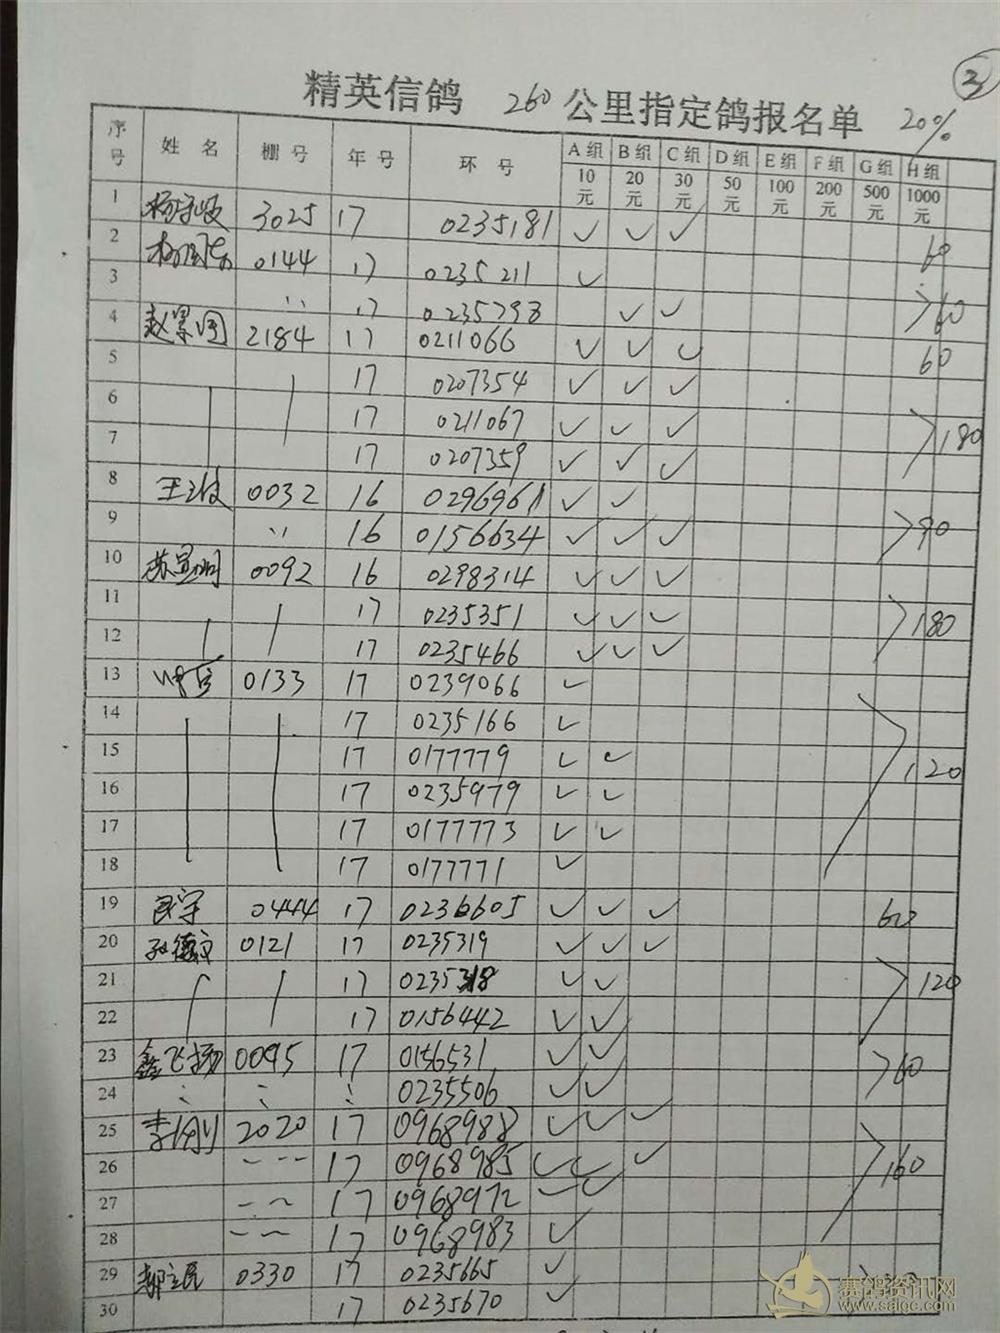 3
精英信鸽 260 公里指定鸽报名单 20%
序号 姓 名 棚 号 年 号 环 号 A组 B组 C组 D组 E组 F组 G组 H组
10元 20元 30元 50元 100元 200元 500元 1000元
1 3025 17 0235181 ✓ ✓ ✓ 60
2 0144 17 0235211 ✓
3 17 0235298 ✓ ✓ 60
4 2184 17 0211066 ✓ ✓ ✓ 60
5 17 0207354 ✓ ✓ ✓
6 17 0211067 ✓ ✓ ✓ 180
7 17 0207359 ✓ ✓ ✓
8 0032 16 0296961 ✓ ✓
9 16 0156634 ✓ ✓ ✓ 90
10 0092 16 0298314 ✓ ✓ ✓
11 17 0235351 ✓ ✓ ✓ 180
12 17 0235466 ✓ ✓ ✓
13 0133 17 0239066 ✓
14 17 0235166 ✓
15 17 0177779 ✓ ✓ 120
16 17 0235979 ✓ ✓
17 17 0177773 ✓ ✓
18 17 0177771 ✓
19 0444 17 0236605 ✓ ✓ ✓ 60
20 孙德文 0121 17 0235319 ✓ ✓ ✓
21 17 0235318 ✓ ✓ 120
22 17 0156442 ✓ ✓
23 鑫飞扬 0095 17 0156531 ✓ ✓ 60
24 0235506 ✓ ✓
25 李刚 2020 17 0968988 ✓ ✓ ✓
26 17 0968985 ✓ ✓ ✓ 160
27 17 0968972 ✓ ✓
28 17 0968983 ✓
29 郝立民 0330 17 0235665 ✓
30 17 0235670 ✓
赛鸽资讯网
www.saigc.com